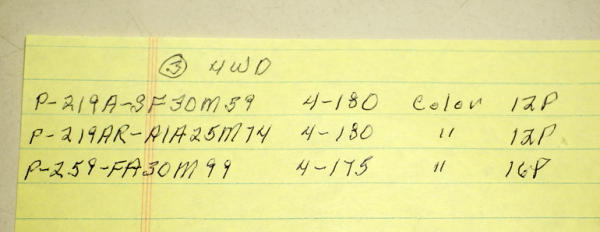 ③ 4WD
P-219A-SF30M59 4-180 Color 12P
P-219AR-A1A25M74 4-180 " 12P
P-259-FA30M99 4-175 " 16P